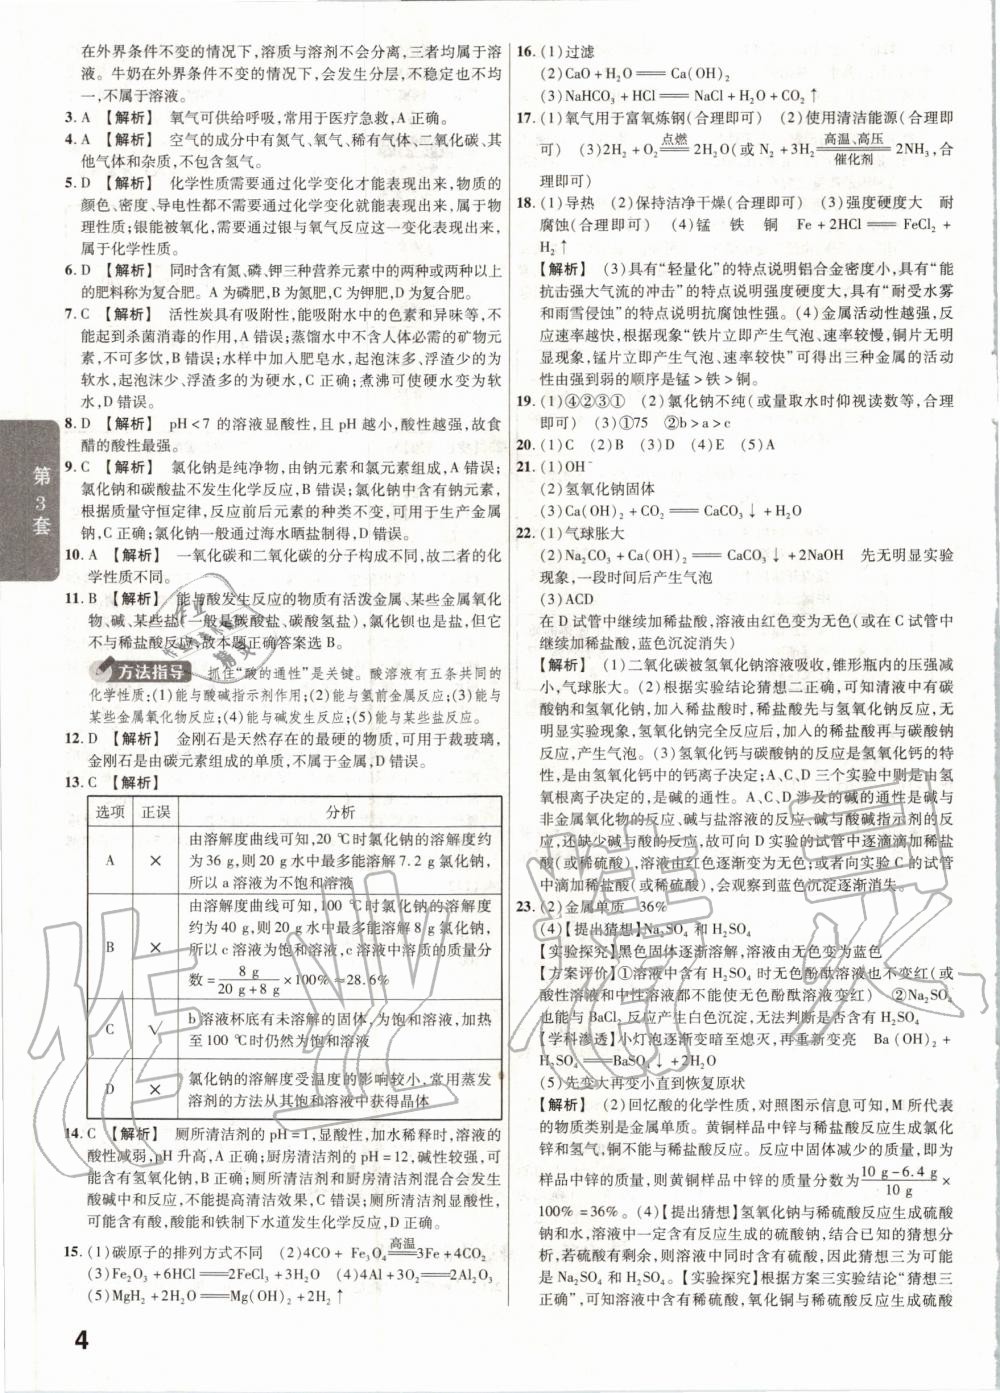 在外界条件不变的情况下,溶质与溶剂不会分离,三者均属于溶
液。牛奶在外界条件不变的情况下,会发生分层,不稳定也不均
一,不属于溶液。
3. A 【解析】 氧气可供给呼吸,常用于医疗急救,A 正确。
4. A 【解析】 空气的成分中有氮气、氧气、稀有气体、二氧化碳、其
他气体和杂质,不包含氢气。
5. D 【解析】 化学性质需要通过化学变化才能表现出来,物质的
颜色、密度、导电性都不需要通过化学变化就能表现出来,属于物
理性质;银能被氧化,需要通过银与氧气反应这一变化表现出来,
属于化学性质。
6. D 【解析】 同时含有氮、磷、钾三种营养元素中的两种或两种以上
的肥料称为复合肥。A 为磷肥,B 为氮肥,C 为钾肥,D 为复合肥。
7. C 【解析】 活性炭具有吸附性,能吸附水中的色素和异味,不
能起到杀菌消毒的作用,A 错误;蒸馏水中不含人体必需的矿物元
素,不可多饮,B 错误;水样中加入肥皂水,起泡沫多、浮渣少的为
软水,起泡沫少、浮渣多的为硬水,C 正确;煮沸可使硬水变为软
水,D 错误。
8. D 【解析】 pH<7 的溶液显酸性,且 pH 越小,酸性越强,故食
醋的酸性最强。
9. C 【解析】 氯化钠是纯净物,由钠元素和氯元素组成,A 错误;
氯化钠和碳酸盐不发生化学反应,B 错误;氯化钠中含有钠元素,
根据质量守恒定律,反应前后元素的种类不变,可用于生产金属
钠,C 正确;氯化钠一般通过海水晒盐制得,D 错误。
10. A 【解析】 一氧化碳和二氧化碳的分子构成不同,故二者的化
学性质不同。
11. B 【解析】 能与酸发生反应的物质有活泼金属、某些金属氧化
物、碱、某些盐(一般是碳酸盐、碳酸氢盐),氯化钡也是盐,但它
不与稀盐酸反应,故本题正确答案选 B。
方法指导 抓住“酸的通性”是关键。酸溶液有五条共同的
化学性质:(1)能与酸碱指示剂作用;(2)能与氢前金属反应;(3)能与
某些金属氧化物反应;(4)能与碱发生反应;(5)能与某些盐反应。
12. D 【解析】 金刚石是天然存在的最硬的物质,可用于裁玻璃,
金刚石是由碳元素组成的单质,不属于金属,D 错误。
13. C 【解析】
选项 正误 分析
A × 由溶解度曲线可知,20 ℃时氯化钠的溶解度约
为 36 g,则 20 g 水中最多能溶解 7.2 g 氯化钠,
所以 a 溶液为不饱和溶液
B × 由溶解度曲线可知,100 ℃时氯化钠的溶解度
约为 40 g,则 20 g 水中最多能溶解 8 g 氯化钠,
所以 c 溶液为饱和溶液,c 溶液中溶质的质量分
数=8 g/(20 g+8 g)×100%≈28.6%
C √ b 溶液杯底有未溶解的固体,为饱和溶液,加热
至 100 ℃时仍然为饱和溶液
D × 氯化钠的溶解度受温度的影响较小,常用蒸发
溶剂的方法从其饱和溶液中获得晶体
14. C 【解析】 厕所清洁剂的 pH=1,显酸性,加水稀释时,溶液的
酸性减弱,pH 升高,A 正确;厨房清洁剂的 pH=12,碱性较强,可
能含有氢氧化钠,B 正确;厕所清洁剂和厨房清洁剂混合会发生
酸碱中和反应,不能提高清洁效果,C 错误;厕所清洁剂显酸性,
可能含有酸,酸能和铁制下水道发生化学反应,D 正确。
15. (1)碳原子的排列方式不同 (2)4CO + Fe₃O₄ =高温= 3Fe + 4CO₂
(3)Fe₂O₃+6HCl══2FeCl₃+3H₂O (4)4Al+3O₂══2Al₂O₃
(5)MgH₂+2H₂O══Mg(OH)₂+2H₂↑
16. (1)过滤
(2)CaO+H₂O══Ca(OH)₂
(3)NaHCO₃+HCl══NaCl+H₂O+CO₂↑
17. (1)氧气用于富氧炼钢(合理即可) (2)使用清洁能源(合理即
可) (3)2H₂+O₂ =点燃= 2H₂O(或 N₂+3H₂ =高温、高压/催化剂= 2NH₃,合
理即可)
18. (1)导热 (2)保持洁净干燥(合理即可) (3)强度硬度大 耐
腐蚀(合理即可) (4)锰 铁 铜 Fe+2HCl══FeCl₂+
H₂↑
【解析】 (3)具有“轻量化”的特点说明铝合金密度小,具有“能
抗击强大气流的冲击”的特点说明强度硬度大,具有“耐受水雾
和雨雪侵蚀”的特点说明抗腐蚀性强。(4)金属活动性越强,反
应速率越快,根据现象“铁片立即产生气泡、速率较慢,铜片无明
显现象,锰片立即产生气泡、速率较快”可得出三种金属的活动
性由强到弱的顺序是锰>铁>铜。
19. (1)④②③① (2)氯化钠不纯(或量取水时仰视读数等,合理
即可) (3)①75 ②b>a>c
20. (1)C (2)B (3)D (4)E (5)A
21. (1)OH⁻
(2)氢氧化钠固体
(3)Ca(OH)₂+CO₂══CaCO₃↓+H₂O
22. (1)气球胀大
(2)Na₂CO₃+Ca(OH)₂══CaCO₃↓+2NaOH 先无明显实验
现象,一段时间后产生气泡
(3)ACD
在 D 试管中继续加稀盐酸,溶液由红色变为无色(或在 C 试管中
继续加稀盐酸,蓝色沉淀消失)
【解析】 (1)二氧化碳被氢氧化钠溶液吸收,锥形瓶内的压强减
小,气球胀大。(2)根据实验结论猜想二正确,可知溶液中有碳
酸钠和氢氧化钠,加入稀盐酸时,稀盐酸先与氢氧化钠反应,无
明显实验现象,氢氧化钠完全反应后,加入的稀盐酸再与碳酸钠
反应,产生气泡。(3)氢氧化钙与碳酸钠的反应是氢氧化钙的特
性,是由氢氧化钙中的钙离子决定;A、C、D 三个实验中则是由氢
氧根离子决定的,是碱的通性。A、C、D 涉及的碱的通性是碱与
非金属氧化物的反应、碱与盐溶液的反应、碱与酸碱指示剂的反
应,还缺少碱与酸的反应,故可向 D 实验的试管中逐滴滴加稀盐
酸(或稀硫酸),溶液由红色逐渐变为无色;或向 C 实验的试管
中滴加稀盐酸(或稀硫酸),会观察到蓝色沉淀逐渐消失。
23. (2)金属单质 36%
(4)【提出猜想】Na₂SO₄ 和 H₂SO₄
【实验探究】黑色固体逐渐溶解,溶液由无色变为蓝色
【方案评价】①溶液中含有 H₂SO₄ 时无色酚酞溶液也不变红(或
酸性溶液和中性溶液都不能使无色酚酞溶液变红) ②Na₂SO₄
也能与 BaCl₂ 反应产生白色沉淀,无法判断是否含有 H₂SO₄
【学科渗透】小灯泡逐渐变暗至熄灭,再重新变亮 Ba(OH)₂+
H₂SO₄══BaSO₄↓+2H₂O
(5)先变大再变小直到恢复原状
【解析】 (2)回忆酸的化学性质,对照图示信息可知,M 所代表
的物质类别是金属单质。黄铜样品中锌与稀盐酸反应生成氯化
锌和氢气,铜不能与稀盐酸反应。样品中固体减少的质量,即为
样品中锌的质量,则黄铜样品中锌的质量分数为(10 g-6.4 g)/10 g×
100%=36%。(4)【提出猜想】氢氧化钠与稀硫酸反应生成硫酸
钠和水,溶液中一定含有反应生成的硫酸钠,结合已知的猜想分
析,若硫酸有剩余,则溶液中同时含有硫酸,因此猜想三为可能
是 Na₂SO₄ 和 H₂SO₄。【实验探究】根据方案三实验结论“猜想三
正确”,可知溶液中含有稀硫酸,氧化铜与稀硫酸反应生成硫酸
第3套
4
作业精灵